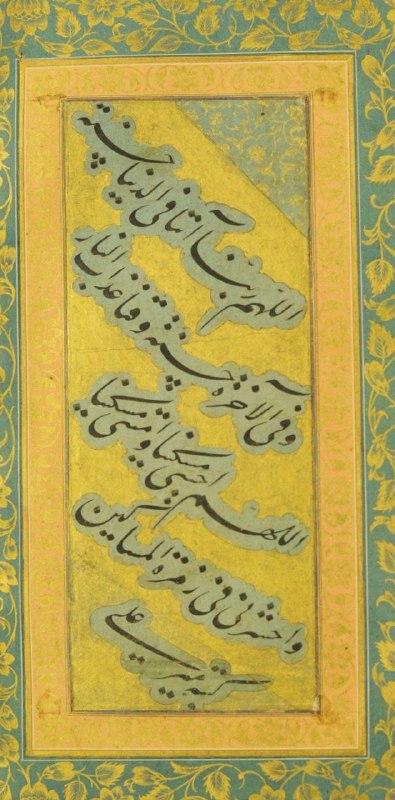 اللهم ربنا آتنا فی الدنیا حسنة
وفی الآخرة حسنة وقنا عذاب النار
اللهم احینی مسکینا وامتنی مسکینا
واحشرنی فی زمرة المساکین
کتبه میر علی